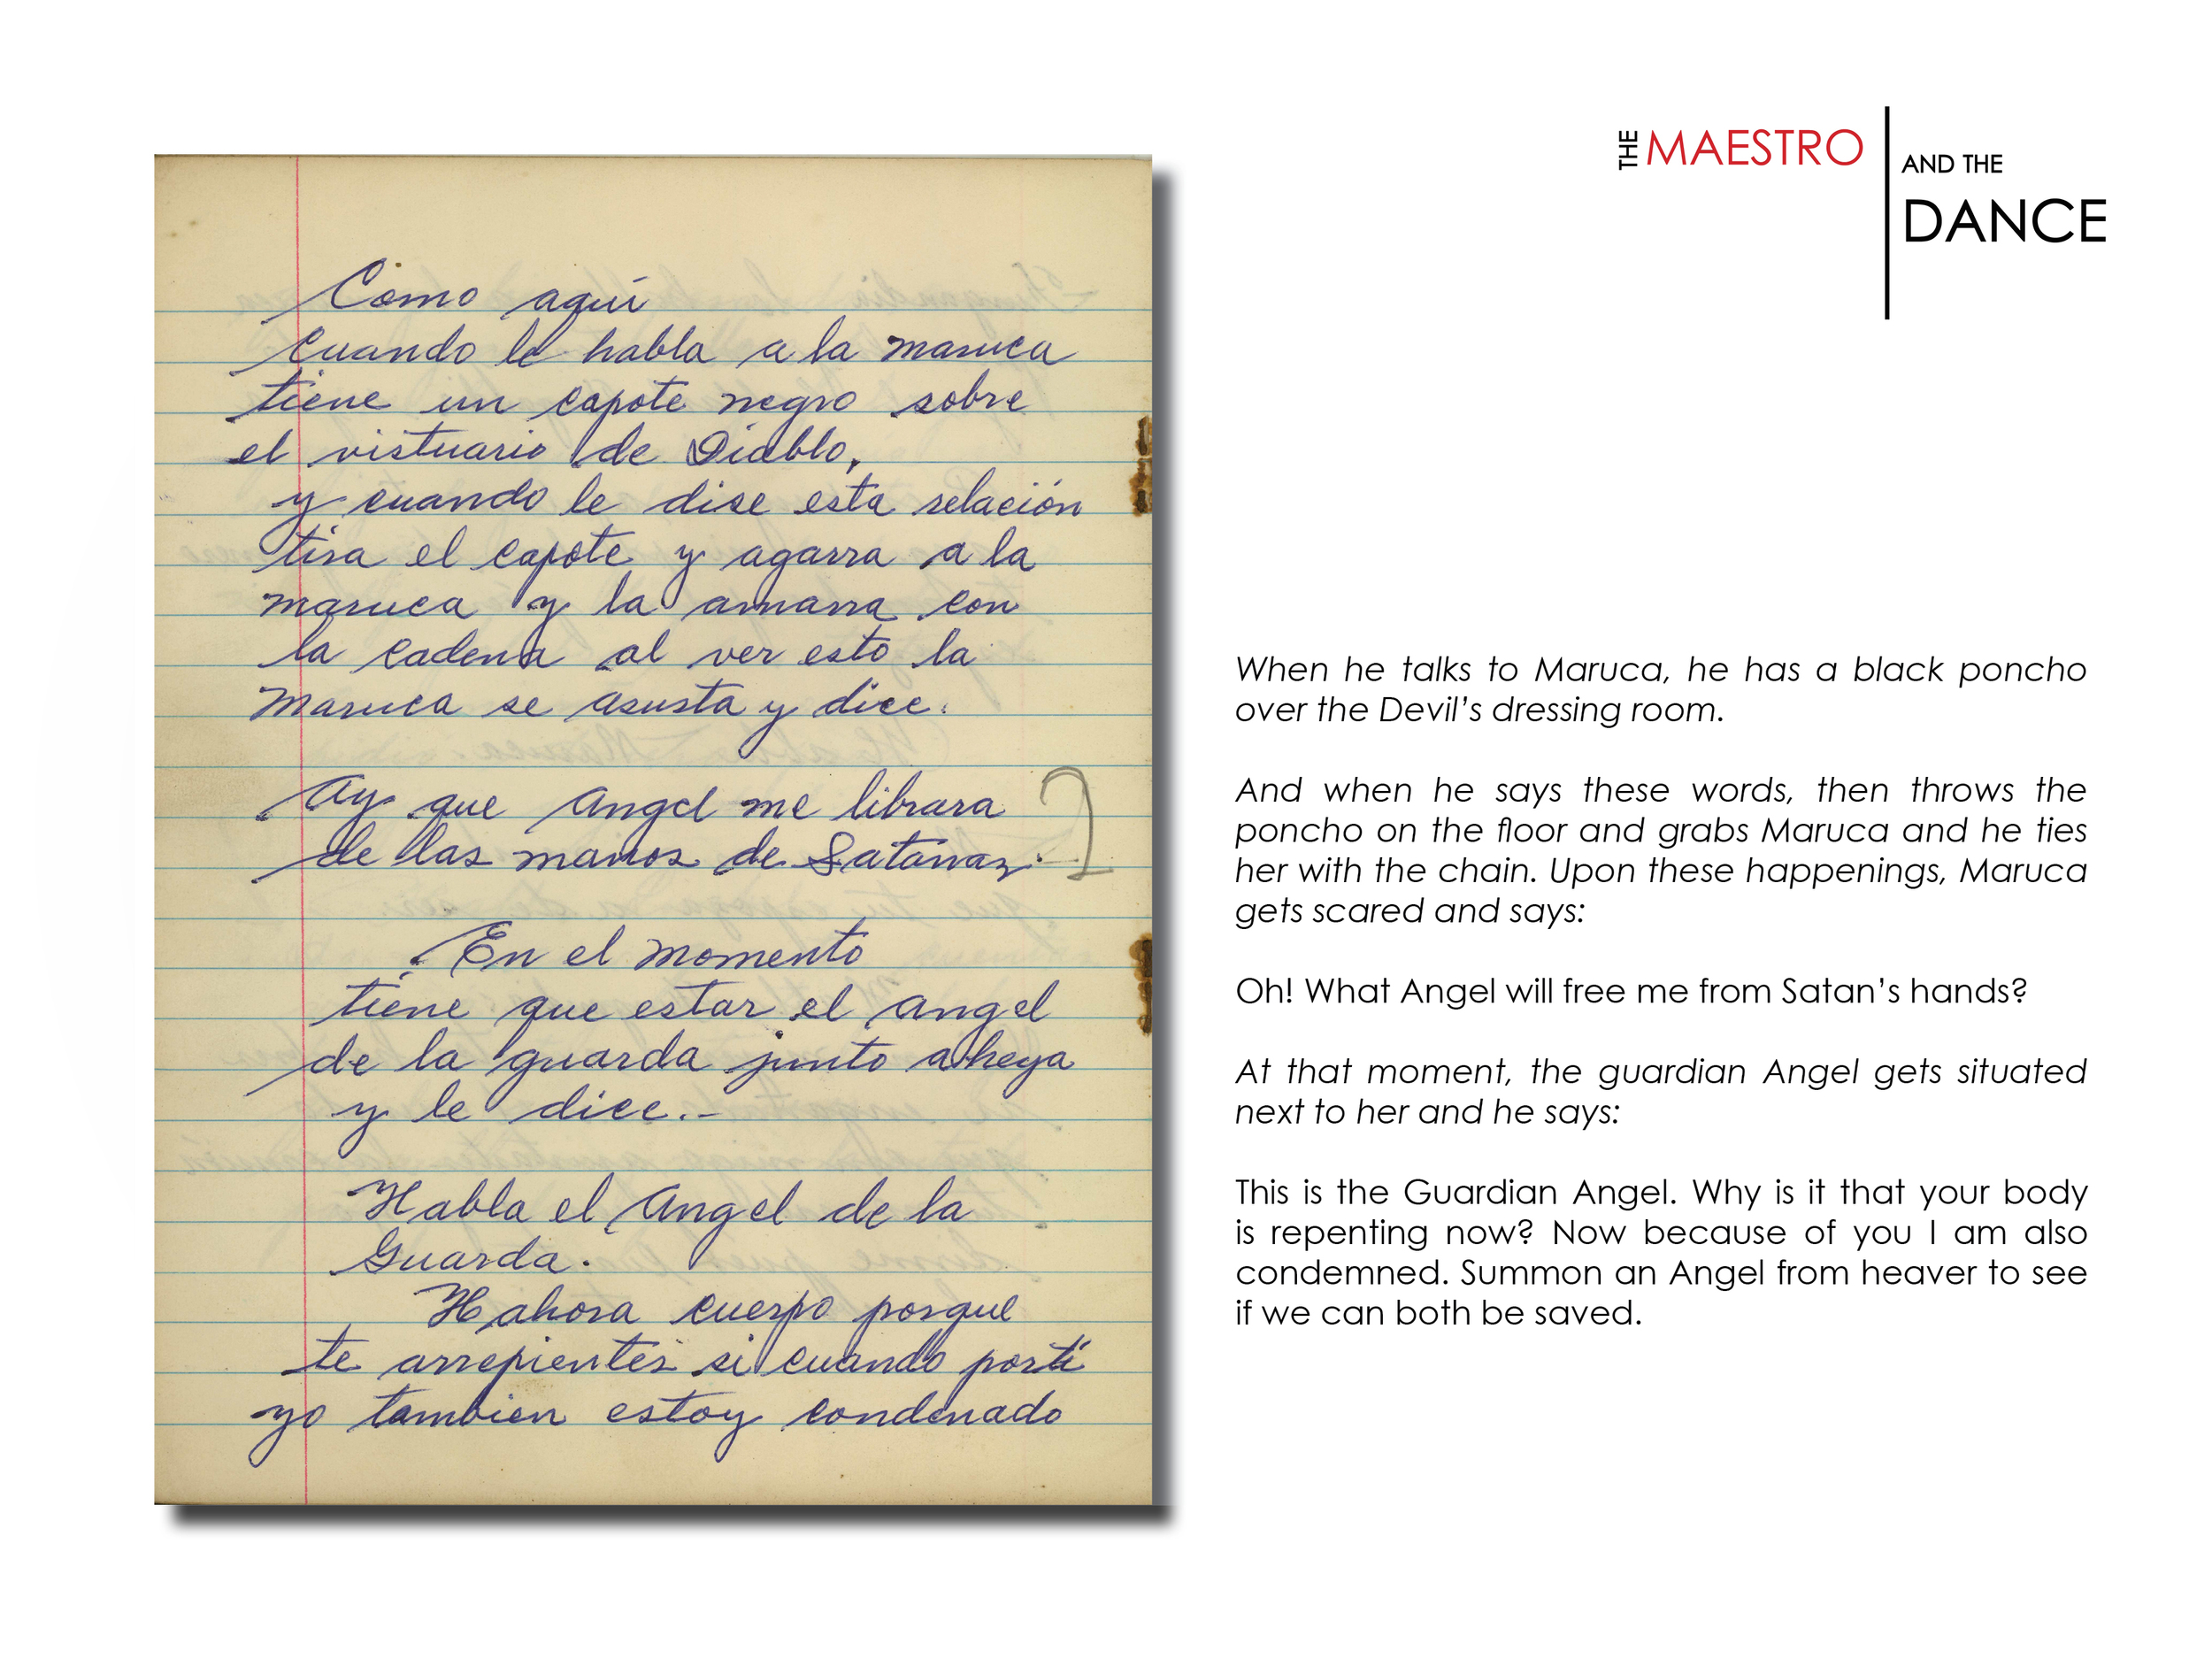 THE MAESTRO AND THE
DANCE
Como aquí
cuando le habla a la maruca
tiene un capote negro sobre
el vistuario de Diablo,
y cuando le dise esta relación
tira el capote y agarra a la
maruca y la amarra con
la cadena al ver esto la
Maruca se asusta y dice.
Ay que Angel me librara
de las manos de Satanaz.
En el momento
tiene que estar el angel
de la guarda junto a heya
y le dice.-
Habla el Angel de la
Guarda.
Hahora cuerpo porque
te arrepientes si cuando porti
yo tambien estoy condenado
When he talks to Maruca, he has a black poncho
over the Devil’s dressing room.
And when he says these words, then throws the
poncho on the floor and grabs Maruca and he ties
her with the chain. Upon these happenings, Maruca
gets scared and says:
Oh! What Angel will free me from Satan’s hands?
At that moment, the guardian Angel gets situated
next to her and he says:
This is the Guardian Angel. Why is it that your body
is repenting now? Now because of you I am also
condemned. Summon an Angel from heaver to see
if we can both be saved.